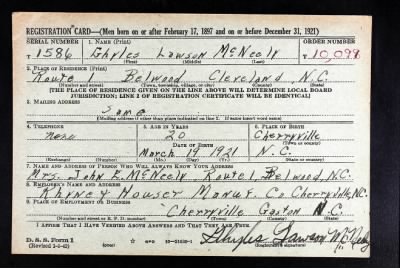 REGISTRATION CARD—(Men born on or after February 17, 1897 and on or before December 31, 1921)
SERIAL NUMBER 1. NAME (Print) ORDER NUMBER
1586 Ghyles Lawson McNeely 10,099
(First) (Middle) (Last)
2. PLACE OF RESIDENCE (Print)
Route 1 Belwood Cleveland N.C.
(Number and street) (Town, township, village, or city) (County) (State)
[THE PLACE OF RESIDENCE GIVEN ON THE LINE ABOVE WILL DETERMINE LOCAL BOARD
JURISDICTION; LINE 2 OF REGISTRATION CERTIFICATE WILL BE IDENTICAL]
3. MAILING ADDRESS
Same
[Mailing address if other than place indicated on line 2. If same insert word same]
4. TELEPHONE 5. AGE IN YEARS 6. PLACE OF BIRTH
none 20 Cherryville
DATE OF BIRTH (Town or county)
March 19 1921 N.C.
(Exchange) (Number) (Mo.) (Day) (Yr.) (State or country)
7. NAME AND ADDRESS OF PERSON WHO WILL ALWAYS KNOW YOUR ADDRESS
Mrs. John E. McNeely, Route 1, Belwood, N.C.
8. EMPLOYER'S NAME AND ADDRESS
Rhyne & Houser Manuf. Co Cherryville, N.C.
9. PLACE OF EMPLOYMENT OR BUSINESS
Cherryville Gaston N.C.
(Number and street or R. F. D. number) (Town) (County) (State)
I AFFIRM THAT I HAVE VERIFIED ABOVE ANSWERS AND THAT THEY ARE TRUE.
D. S. S. Form 1
Ghyles Lawson McNeely